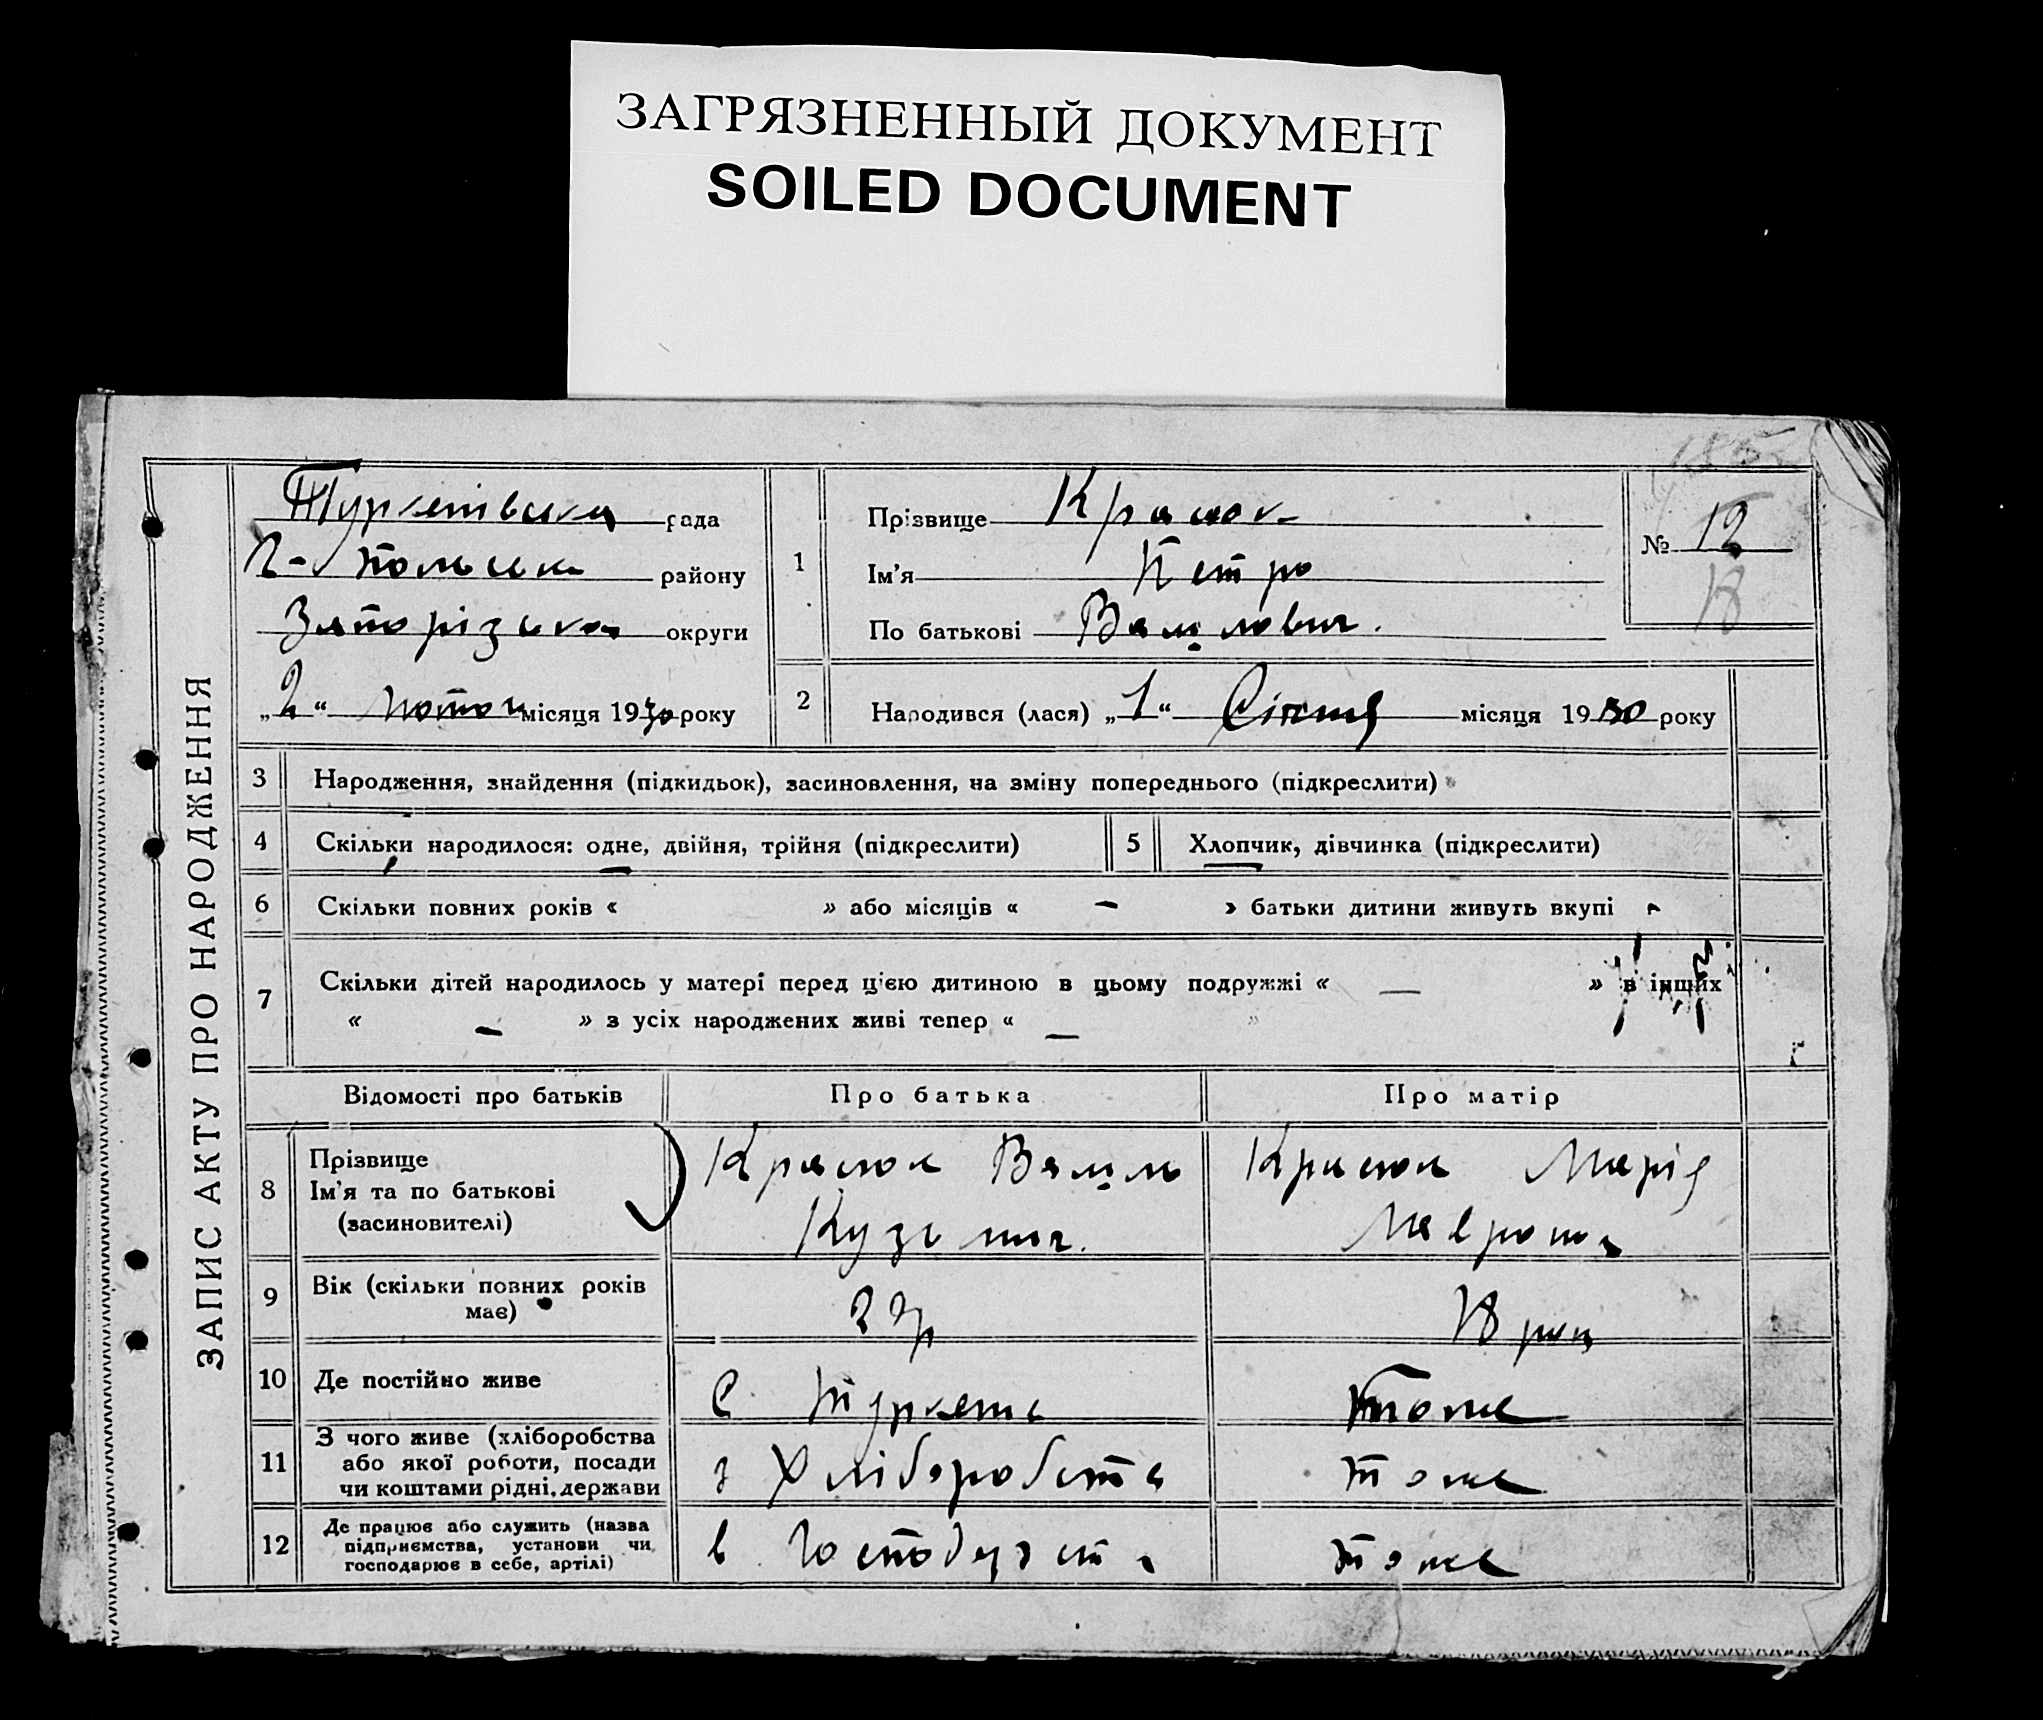 ЗАГРЯЗНЕННЫЙ ДОКУМЕНТ
SOILED DOCUMENT
ЗАПИС АКТУ ПРО НАРОДЖЕННЯ
рада
району
округи
„2“ місяця 1930 року
1
Прізвище
Ім'я Петро
По батькові
№ 12
18
2
Народився (лася) „1“ Січня місяця 1930 року
3 Народження, знайдення (підкидьок), засиновлення, на зміну попереднього (підкреслити)
4 Скільки народилося: одне, двійня, трійня (підкреслити) 5 Хлопчик, дівчинка (підкреслити)
6 Скільки повних років « » або місяців « — » батьки дитини живуть вкупі
7 Скільки дітей народилось у матері перед цією дитиною в цьому подружжі « — » в інших
« — » з усіх народжених живі тепер « — »
Відомості про батьків Про батька Про матір
8 Прізвище
Ім'я та по батькові
(засиновителі)
Василь
Кузьмич.
Марія
9 Вік (скільки повних років
має)
18 рок
10 Де постійно живе
С. тоже
11 З чого живе (хліборобства
або якої роботи, посади
чи коштами рідні, держави
з Хліборобства тоже
12 Де працює або служить (назва
підприємства, установи чи
господарює в себе, артілі)
в тоже